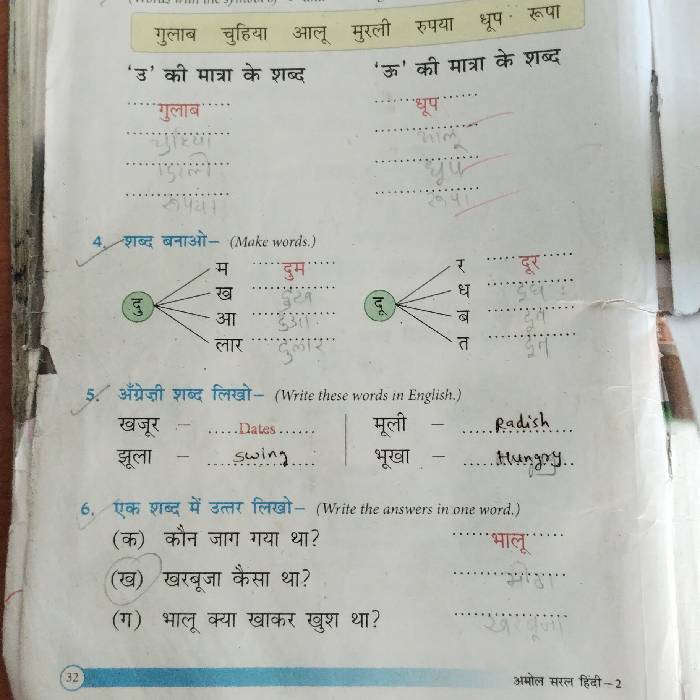 गुलाब चुहिया आलू मुरली रुपया धूप रूपा
'उ' की मात्रा के शब्द 'ऊ' की मात्रा के शब्द
गुलाब धूप
चुहिया भालू
धूप
रुपया रूपा
4. शब्द बनाओ– (Make words.)
दु म दुम दू र दूर
ख ध
आ ब
लार दुलार त
5. अँग्रेज़ी शब्द लिखो– (Write these words in English.)
खजूर – Dates मूली – Radish
झूला – swing भूखा – Hungry
6. एक शब्द में उत्तर लिखो– (Write the answers in one word.)
(क) कौन जाग गया था? भालू
(ख) खरबूजा कैसा था? मीठा
(ग) भालू क्या खाकर खुश था? खरबूजा
32 अमोल सरल हिंदी–2